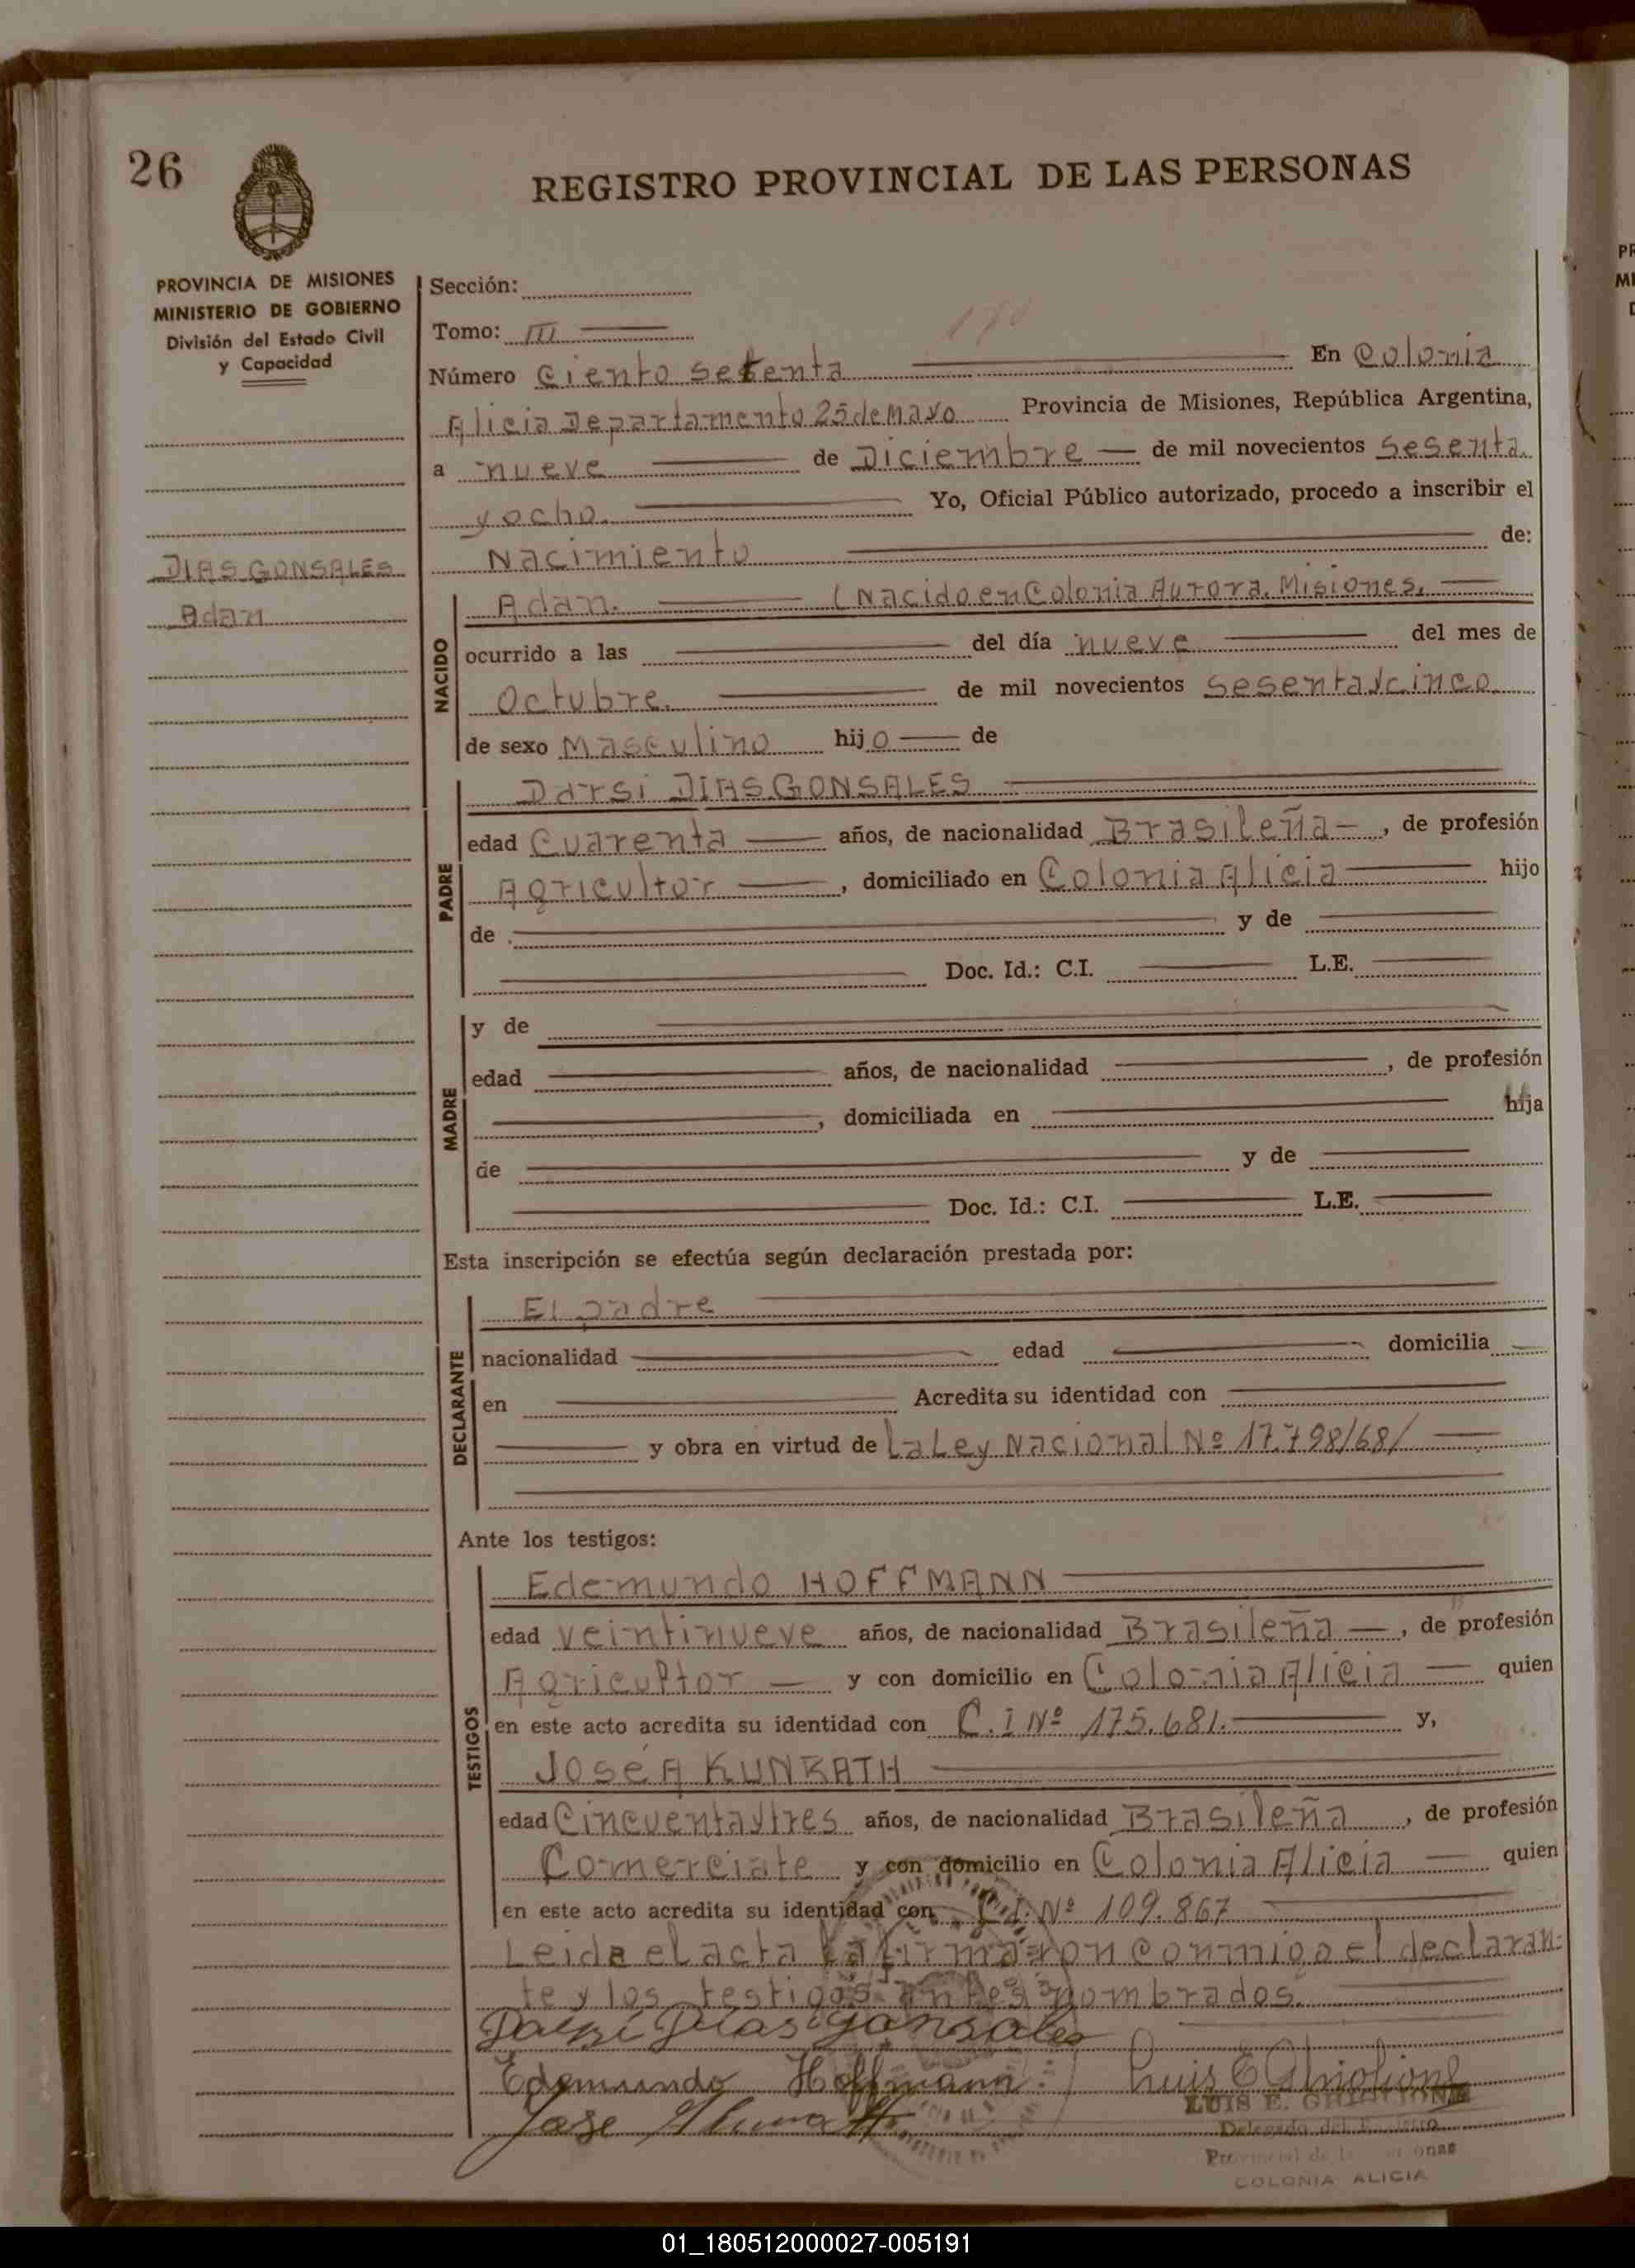 26
REGISTRO PROVINCIAL DE LAS PERSONAS
PROVINCIA DE MISIONES
MINISTERIO DE GOBIERNO
División del Estado Civil
y Capacidad
DIAS GONSALES
Adan
Sección:
Tomo: III
170
Número Ciento setenta En Colonia
Alicia Departamento 25 de Mayo Provincia de Misiones, República Argentina,
a nueve de Diciembre de mil novecientos sesenta
y ocho. Yo, Oficial Público autorizado, procedo a inscribir el
Nacimiento de:
NACIDO
Adan. (Nacido en Colonia Aurora. Misiones.
ocurrido a las del día nueve del mes de
Octubre. de mil novecientos sesenta y cinco
de sexo Masculino hijo de
PADRE
Darsi DIAS GONSALES
edad Cuarenta años, de nacionalidad Brasileña, de profesión
Agricultor, domiciliado en Colonia Alicia hijo
de y de
Doc. Id.: C.I. L.E.
MADRE
y de
edad años, de nacionalidad , de profesión
, domiciliada en hija
de y de
Doc. Id.: C.I. L.E.
Esta inscripción se efectúa según declaración prestada por:
DECLARANTE
El padre
nacionalidad edad domicilia
en Acredita su identidad con
y obra en virtud de la Ley Nacional Nº 17.798/68/
Ante los testigos:
TESTIGOS
Edemundo HOFFMANN
edad veintinueve años, de nacionalidad Brasileña, de profesión
Agricultor y con domicilio en Colonia Alicia quien
en este acto acredita su identidad con C.I Nº 175.681. y,
José A KUNRATH
edad Cincuenta y tres años, de nacionalidad Brasileña, de profesión
Comerciate y con domicilio en Colonia Alicia quien
en este acto acredita su identidad con C.I. Nº 109.867
Leida el acta la firmaron conmigo el declaran-
te y los testigos antes nombrados.
Darsi Dias Gonsales
Edemundo Hoffmann
Luis E Ghiglione
LUIS E. GHIGLIONE
Jose A Kunrath
Delegado del Registro
Provincial de las Personas
COLONIA ALICIA
01_180512000027-005191